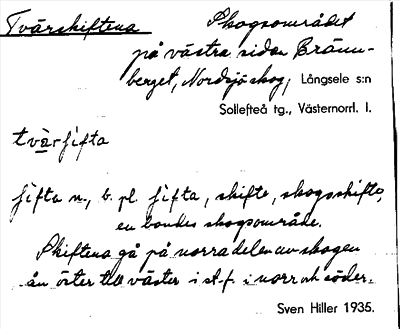 Tvärskiftena
Skogsområdet
på västra sidan Bränn-
berget, Nordsjö skog, Långsele s:n
Sollefteå tg., Västernorrl. l.
tvärʃifta
ʃifta n., b. pl. ʃifta, skifte, skogsskifte,
en bondes skogsområde.
Skiftena gå på norra delen av skogen
än öster till väster i st. f. i norr och söder.
Sven Hiller 1935.